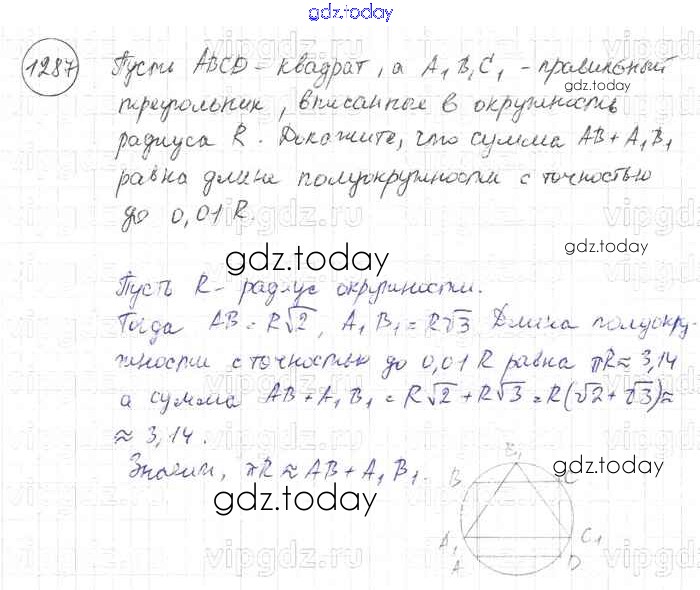 gdz.today
1287 Пусть ABCD - квадрат, а A₁B₁C₁ - правильный
треугольник, вписанные в окружность
радиуса R. Докажите, что сумма AB + A₁B₁
равна длине полуокружности с точностью
до 0,01 R.
gdz.today
gdz.today
Пусть R - радиус окружности.
Тогда AB = R√2, A₁B₁ = R√3 Длина полуокру-
жности с точностью до 0,01 R равна πR ≈ 3,14
gdz.today
а сумма AB + A₁B₁ = R√2 + R√3 = R(√2 + √3) ≈
≈ 3,14.
Значит, πR ≈ AB + A₁B₁.
gdz.today
gdz.today
B₁
B C
A₁ C₁
A D
vipgdz.ru